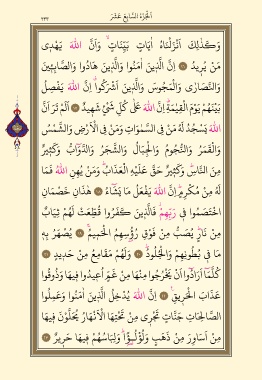 اَلْجُزْءُ السَّابِعَ عَشَرَ
٣٣٣
وَكَذٰلِكَ اَنْزَلْنَاهُ اٰيَاتٍ بَيِّنَاتٍ وَاَنَّ اللّٰهَ يَهْدِى
مَنْ يُرِيدُ ﴿١٦﴾ اِنَّ الَّذِينَ اٰمَنُوا وَالَّذِينَ هَادُوا وَالصَّابِـِٔينَ
وَالنَّصَارٰى وَالْمَجُوسَ وَالَّذِينَ اَشْرَكُوا اِنَّ اللّٰهَ يَفْصِلُ
بَيْنَهُمْ يَوْمَ الْقِيٰمَةِ اِنَّ اللّٰهَ عَلٰى كُلِّ شَىْءٍ شَهِيدٌ ﴿١٧﴾ اَلَمْ تَرَ اَنَّ
اللّٰهَ يَسْجُدُ لَهُ مَنْ فِى السَّمٰوَاتِ وَمَنْ فِى الْاَرْضِ وَالشَّمْسُ
وَالْقَمَرُ وَالنُّجُومُ وَالْجِبَالُ وَالشَّجَرُ وَالدَّوَٓابُّ وَكَثِيرٌ
مِنَ النَّاسِ وَكَثِيرٌ حَقَّ عَلَيْهِ الْعَذَابُ وَمَنْ يُهِنِ اللّٰهُ فَمَا
لَهُ مِنْ مُكْرِمٍ اِنَّ اللّٰهَ يَفْعَلُ مَا يَشَٓاءُ ﴿١٨﴾ هٰذَانِ خَصْمَانِ
اخْتَصَمُوا فِى رَبِّهِمْ فَالَّذِينَ كَفَرُوا قُطِّعَتْ لَهُمْ ثِيَابٌ
مِنْ نَارٍ يُصَبُّ مِنْ فَوْقِ رُؤُ۫سِهِمُ الْحَمِيمُ ﴿١٩﴾ يُصْهَرُ بِهِ
مَا فِى بُطُونِهِمْ وَالْجُلُودُ ﴿٢٠﴾ وَلَهُمْ مَقَامِعُ مِنْ حَدِيدٍ ﴿٢١﴾
كُلَّمَٓا اَرَادُٓوا اَنْ يَخْرُجُوا مِنْهَا مِنْ غَمٍّ اُعِيدُوا فِيهَا وَذُوقُوا
عَذَابَ الْحَرِيقِ ﴿٢٢﴾ اِنَّ اللّٰهَ يُدْخِلُ الَّذِينَ اٰمَنُوا وَعَمِلُوا
الصَّالِحَاتِ جَنَّاتٍ تَجْرِى مِنْ تَحْتِهَا الْاَنْهَارُ يُحَلَّوْنَ فِيهَا
مِنْ اَسَاوِرَ مِنْ ذَهَبٍ وَلُؤْلُؤًا وَلِبَاسُهُمْ فِيهَا حَرِيرٌ ﴿٢٣﴾